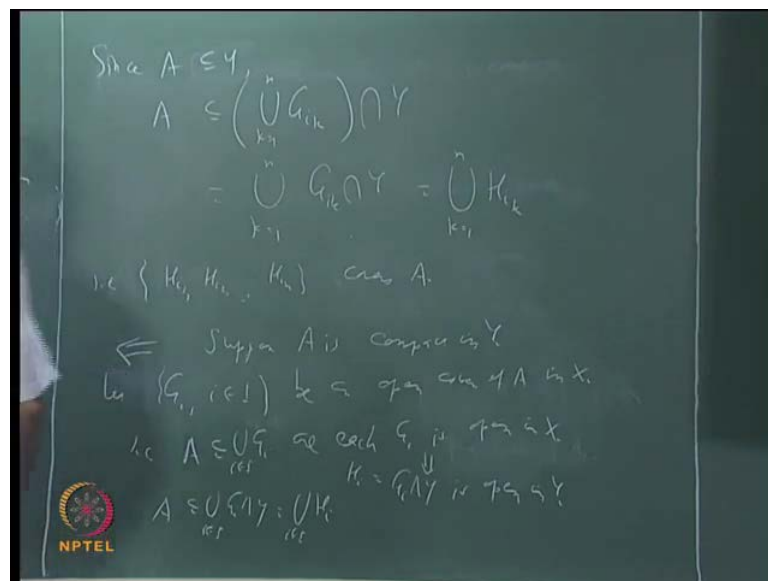 Since A ⊆ Y,
A ⊆ (⋃_{k=1}^{n} G_{i_k}) ∩ Y
= ⋃_{k=1}^{n} G_{i_k} ∩ Y = ⋃_{k=1}^{n} H_{i_k}
i.e {H_{i_1}, H_{i_2}, H_{i_n}} covers A.
⇐ Suppose A is compact in Y.
Let {G_i, i∈I} be an open cover of A in X.
i.e A ⊆ ⋃_{i∈I} G_i and each G_i is open in X
⇓
H_i = G_i ∩ Y is open in Y.
A ⊆ ⋃_{i∈I} G_i ∩ Y = ⋃_{i∈I} H_i
NPTEL